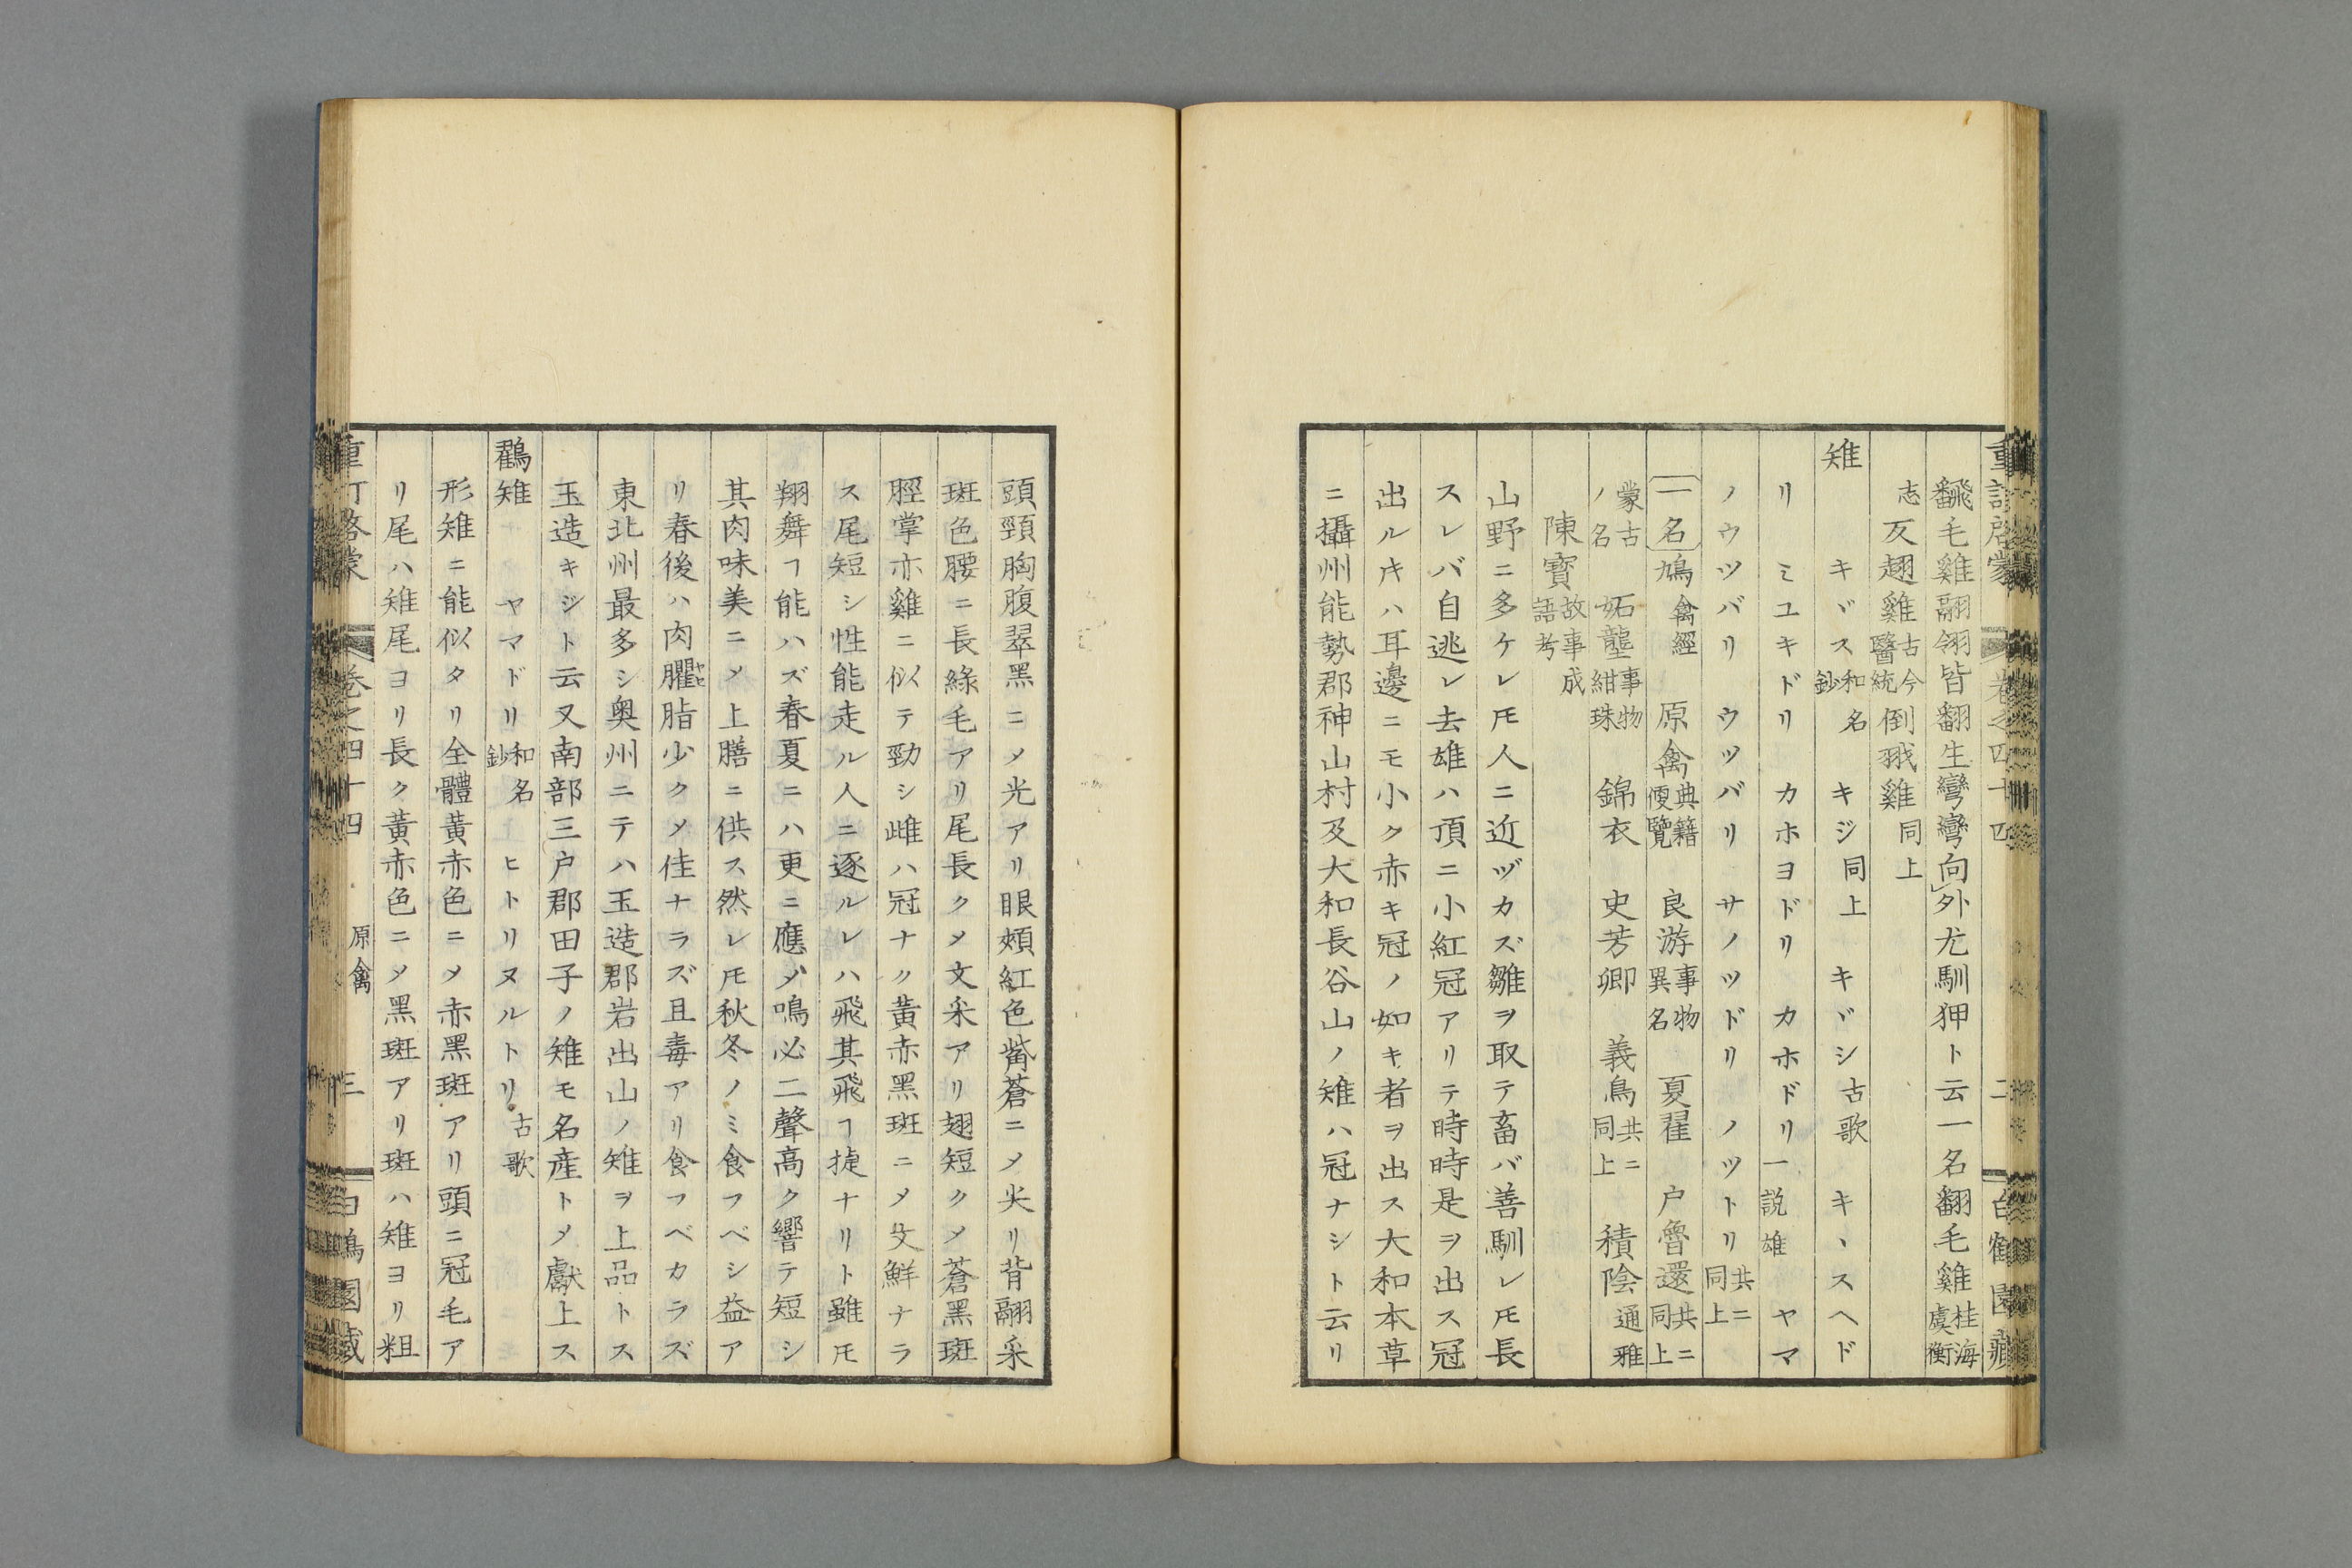 飜毛雞翮翎皆翻生彎彎向外尤馴狎ト云一名翻毛雞桂海虞衡
志反翅雞古今醫統倒毛雞同上
雉
キヾス和名鈔 キジ同上 キヾシ古歌 キヽスヘド
リ ミユキドリ カホヨドリ カホドリ一說雄 ヤマ
ノウツバリ ウツバリ サノツドリ ノツトリ共ニ同上
一名 鳩禽經 原禽典籍便覽 良游事物異名 夏翟 戶魯還共ニ同上
蒙古ノ名 妬壟事物紺珠 錦衣 史芳卿 義鳥共ニ同上 積陰通雅
陳寶故事成語考
山野ニ多ケレ𪜈人ニ近ヅカズ雛ヲ取テ畜バ善馴レ𪜈長
スレバ自逃レ去雄ハ頂ニ小紅冠アリテ時時是ヲ出ス冠
出ルキハ耳邊ニモ小ク赤キ冠ノ如キ者ヲ出ス大和本草
ニ攝州能勢郡神山村及大和長谷山ノ雉ハ冠ナシト云リ
頭頸胸腹翠黑ニ〆光アリ眼頰紅色觜蒼ニ〆尖リ背翮采
斑色腰ニ長綠毛アリ尾長ク〆文采アリ翅短ク〆蒼黑斑
脛掌亦雞ニ似テ勁シ雌ハ冠ナク黃赤黑斑ニ〆文鮮ナラ
ス尾短シ性能走ル人ニ逐ルレハ飛其飛ヿ捷ナリト雖𪜈
翔舞ヿ能ハズ春夏ニハ更ニ應〆鳴必二聲高ク響テ短シ
其肉味美ニ〆上膳ニ供ス然レ𪜈秋冬ノミ食フベシ益ア
リ春後ハ肉臞ヤセ脂少ク〆佳ナラズ且毒アリ食フベカラズ
東北州最多シ奧州ニテハ玉造郡岩出山ノ雉ヲ上品トス
玉造キジト云又南部三戶郡田子ノ雉モ名產ト〆獻上ス
鸐雉 ヤマドリ和名鈔 ヒトリヌルトリ古歌
形雉ニ能似タリ全體黃赤色ニ〆赤黑斑アリ頭ニ冠毛ア
リ尾ハ雉尾ヨリ長ク黃赤色ニ〆黑斑アリ斑ハ雉ヨリ粗
卷之四十四 原禽 三